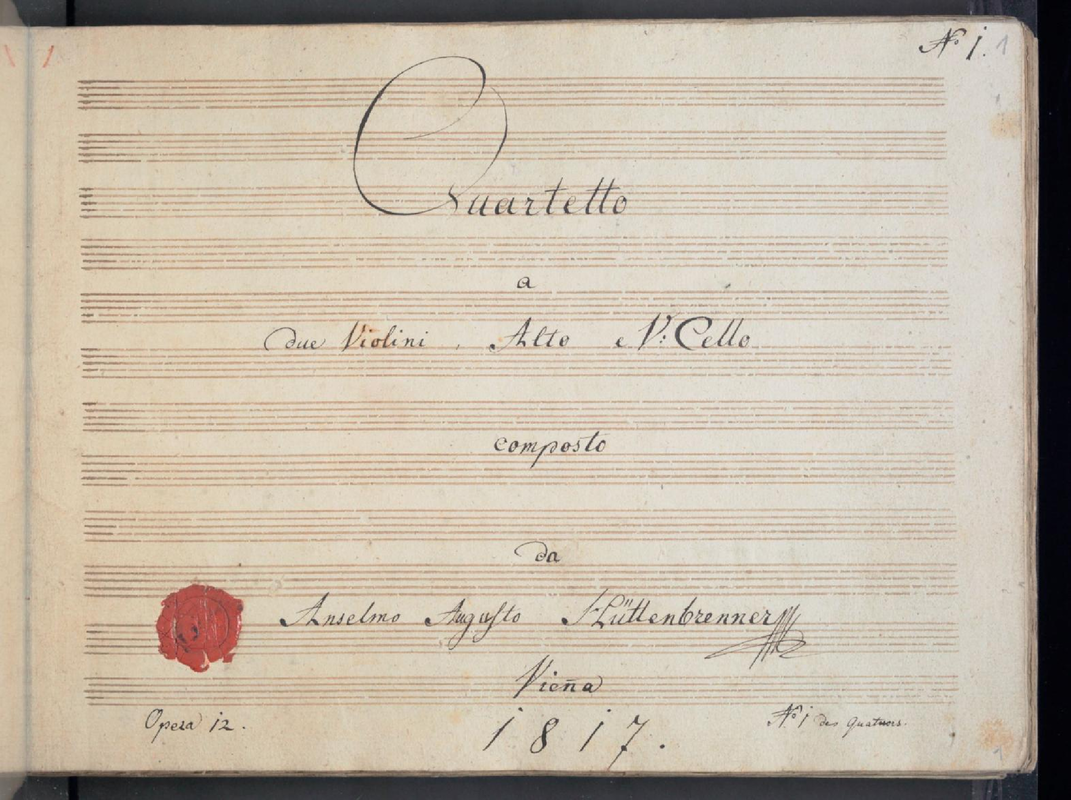 No. 1. 1
Quartetto
a
due Violini, Alto e V: Cello
composto
da
Anselmo Augusto Hüttenbrenner
Vien̄a
Opera 12.
1817.
No 1 des Quatuors.